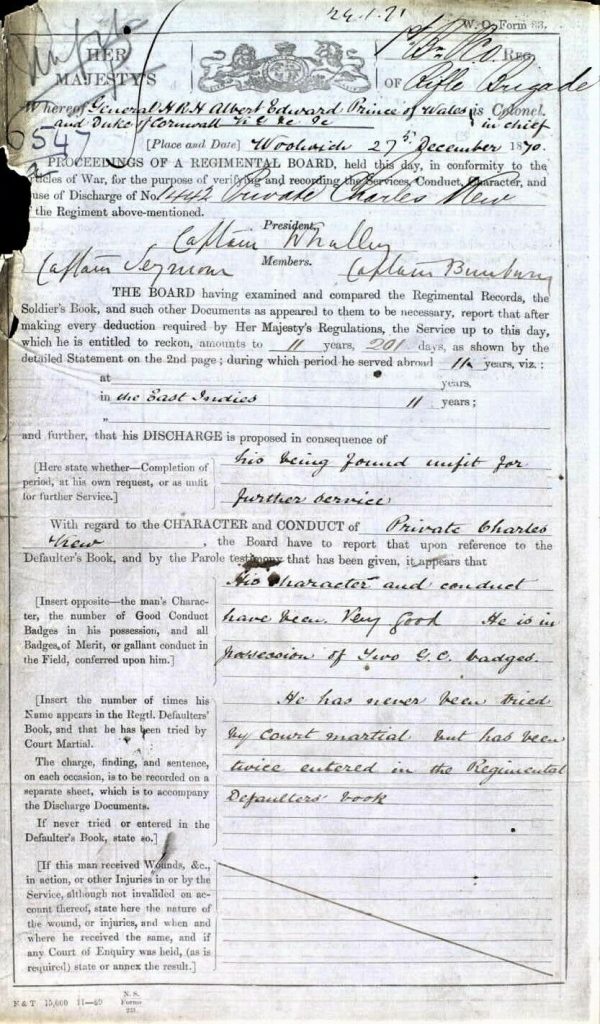 24.1.71
W. O. Form 83.
Unfit
HER
MAJESTY'S
Co. REG.
OF Rifle Brigade
Whereof General HRH Albert Edward Prince of Wales is Colonel.
and Duke of Cornwall in chief
6547
[Place and Date] Woolwich 27th December 1870.
PROCEEDINGS OF A REGIMENTAL BOARD, held this day, in conformity to the
icles of War, for the purpose of verifying and recording the Services, Conduct, Character, and
use of Discharge of No. 1442 Private Charles New
f the Regiment above-mentioned.
President,
Captain Whalley
Members.
Captain Seymour Captain Bunbury
THE BOARD having examined and compared the Regimental Records, the
Soldier's Book, and such other Documents as appeared to them to be necessary, report that after
making every deduction required by Her Majesty's Regulations, the Service up to this day,
which he is entitled to reckon, amounts to 11 years, 201 days, as shown by the
detailed Statement on the 2nd page; during which period he served abroad 11 years, viz.:
at years,
in the East Indies 11 years;
"
and further, that his DISCHARGE is proposed in consequence of
[Here state whether—Completion of
period, at his own request, or as unfit
for further Service.]
his being found unfit for
further service
With regard to the CHARACTER and CONDUCT of Private Charles
New, the Board have to report that upon reference to the
Defaulter's Book, and by the Parole testimony that has been given, it appears that
[Insert opposite—the man's Charac-
ter, the number of Good Conduct
Badges in his possession, and all
Badges of Merit, or gallant conduct in
the Field, conferred upon him.]
His character and conduct
have been Very good He is in
possession of Two G.C. badges.
[Insert the number of times his
Name appears in the Regtl. Defaulters'
Book, and that he has been tried by
Court Martial.
The charge, finding, and sentence,
on each occasion, is to be recorded on a
separate sheet, which is to accompany
the Discharge Documents.
If never tried or entered in the
Defaulter's Book, state so.]
He has never been tried
by court martial but has been
twice entered in the Regimental
Defaulters' book
[If this man received Wounds, &c.,
in action, or other Injuries in or by the
Service, although not invalided on ac-
count thereof, state here the nature of
the wound, or injuries, and when and
where he received the same, and if
any Court of Enquiry was held, (as is
required) state or annex the result.]
F & T 15,000 11—69
N. S.
Forms
231.